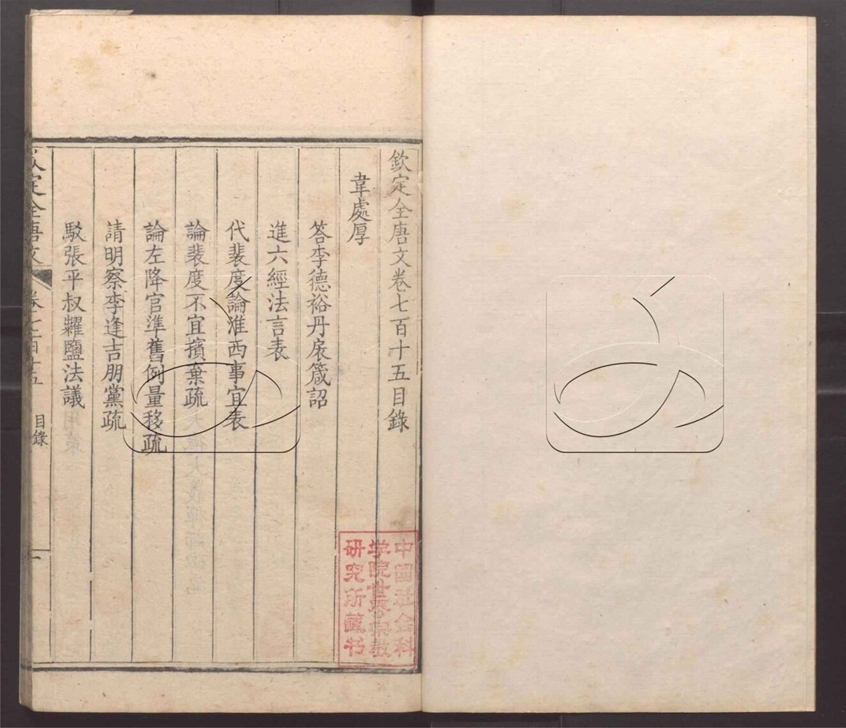 欽定全唐文卷七百十五目錄
韋處厚
答李德裕丹扆箴詔
進六經法言表
代裴度論淮西事宜表
論裴度不宜擯棄疏
論左降官準舊例量移疏
請明察李逢吉朋黨疏
駁張平叔糶鹽法議
欽定全唐文 卷七百十五 目錄 一
中國社会科
学院世界宗教
研究所藏书